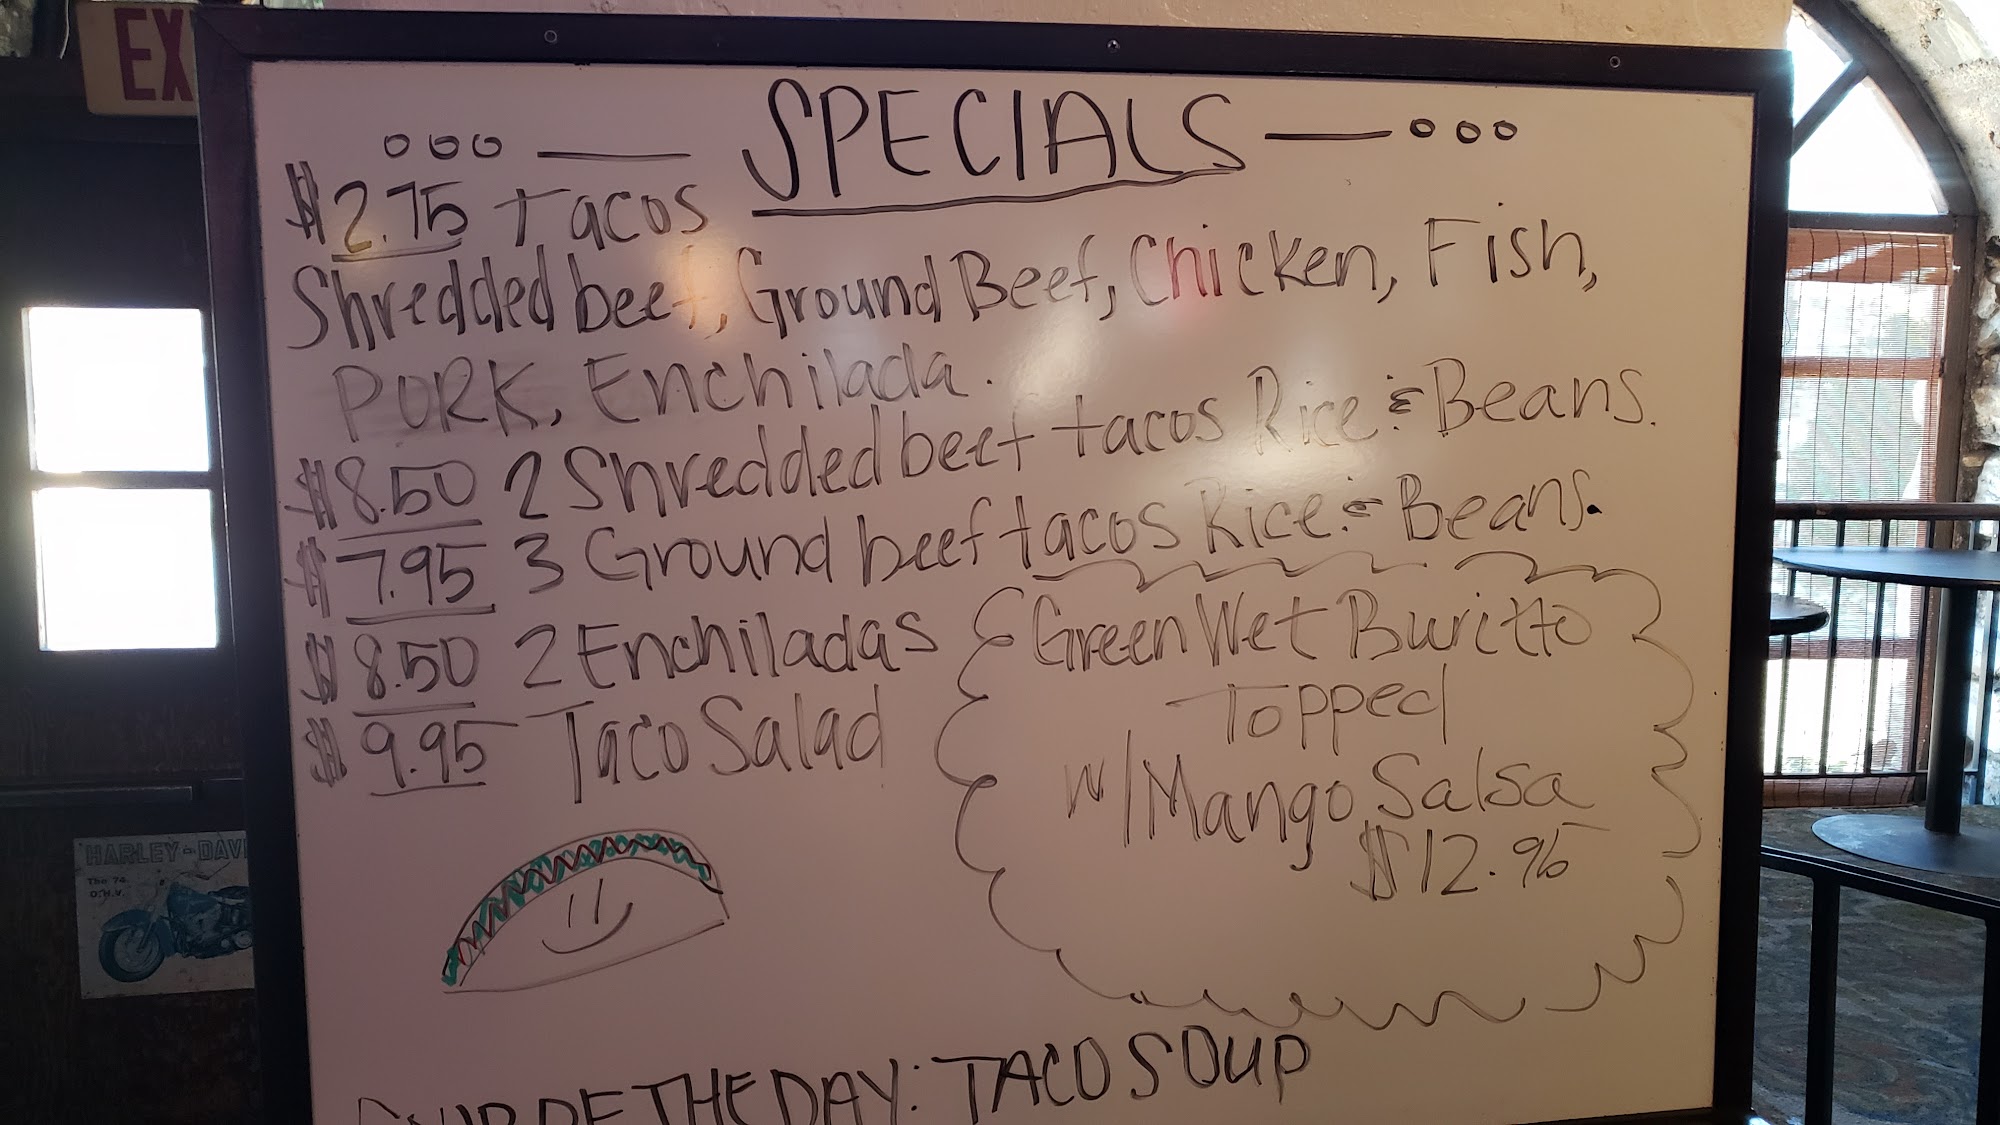 EX
SPECIALS
$2.75 Tacos
Shredded beef, Ground Beef, Chicken, Fish,
PORK, Enchilada.
$8.50 2 Shredded beef tacos Rice & Beans.
$7.95 3 Ground beef tacos Rice & Beans.
$8.50 2 Enchiladas
$9.95 Taco Salad
Green Wet Buritto
Topped
w/Mango Salsa
$12.95
SOUP OF THE DAY: TACO SOUP
HARLEY-DAVI
The 74
O.H.V.